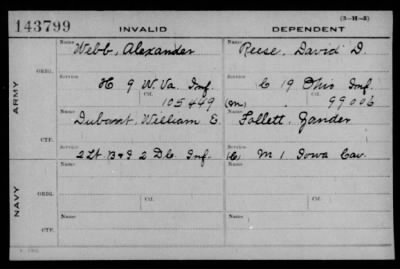 143799 INVALID DEPENDENT (3-H-3)
Name Name
Webb, Alexander Reese, David D.
ORIG.
Service Service
H 9 W. Va. Inf. C 19 Ohio Inf.
Ctf. Ctf.
105449 (m) 99006
ARMY
Name Name
William E. Follett, Zander
CTF.
Service Service
2 Lt. B & I 2 D.C. Inf. M 1 Iowa Cav.
Name Name
ORIG.
Service Ctf. Service Ctf.
NAVY
Name Name
CTF.
Service Service